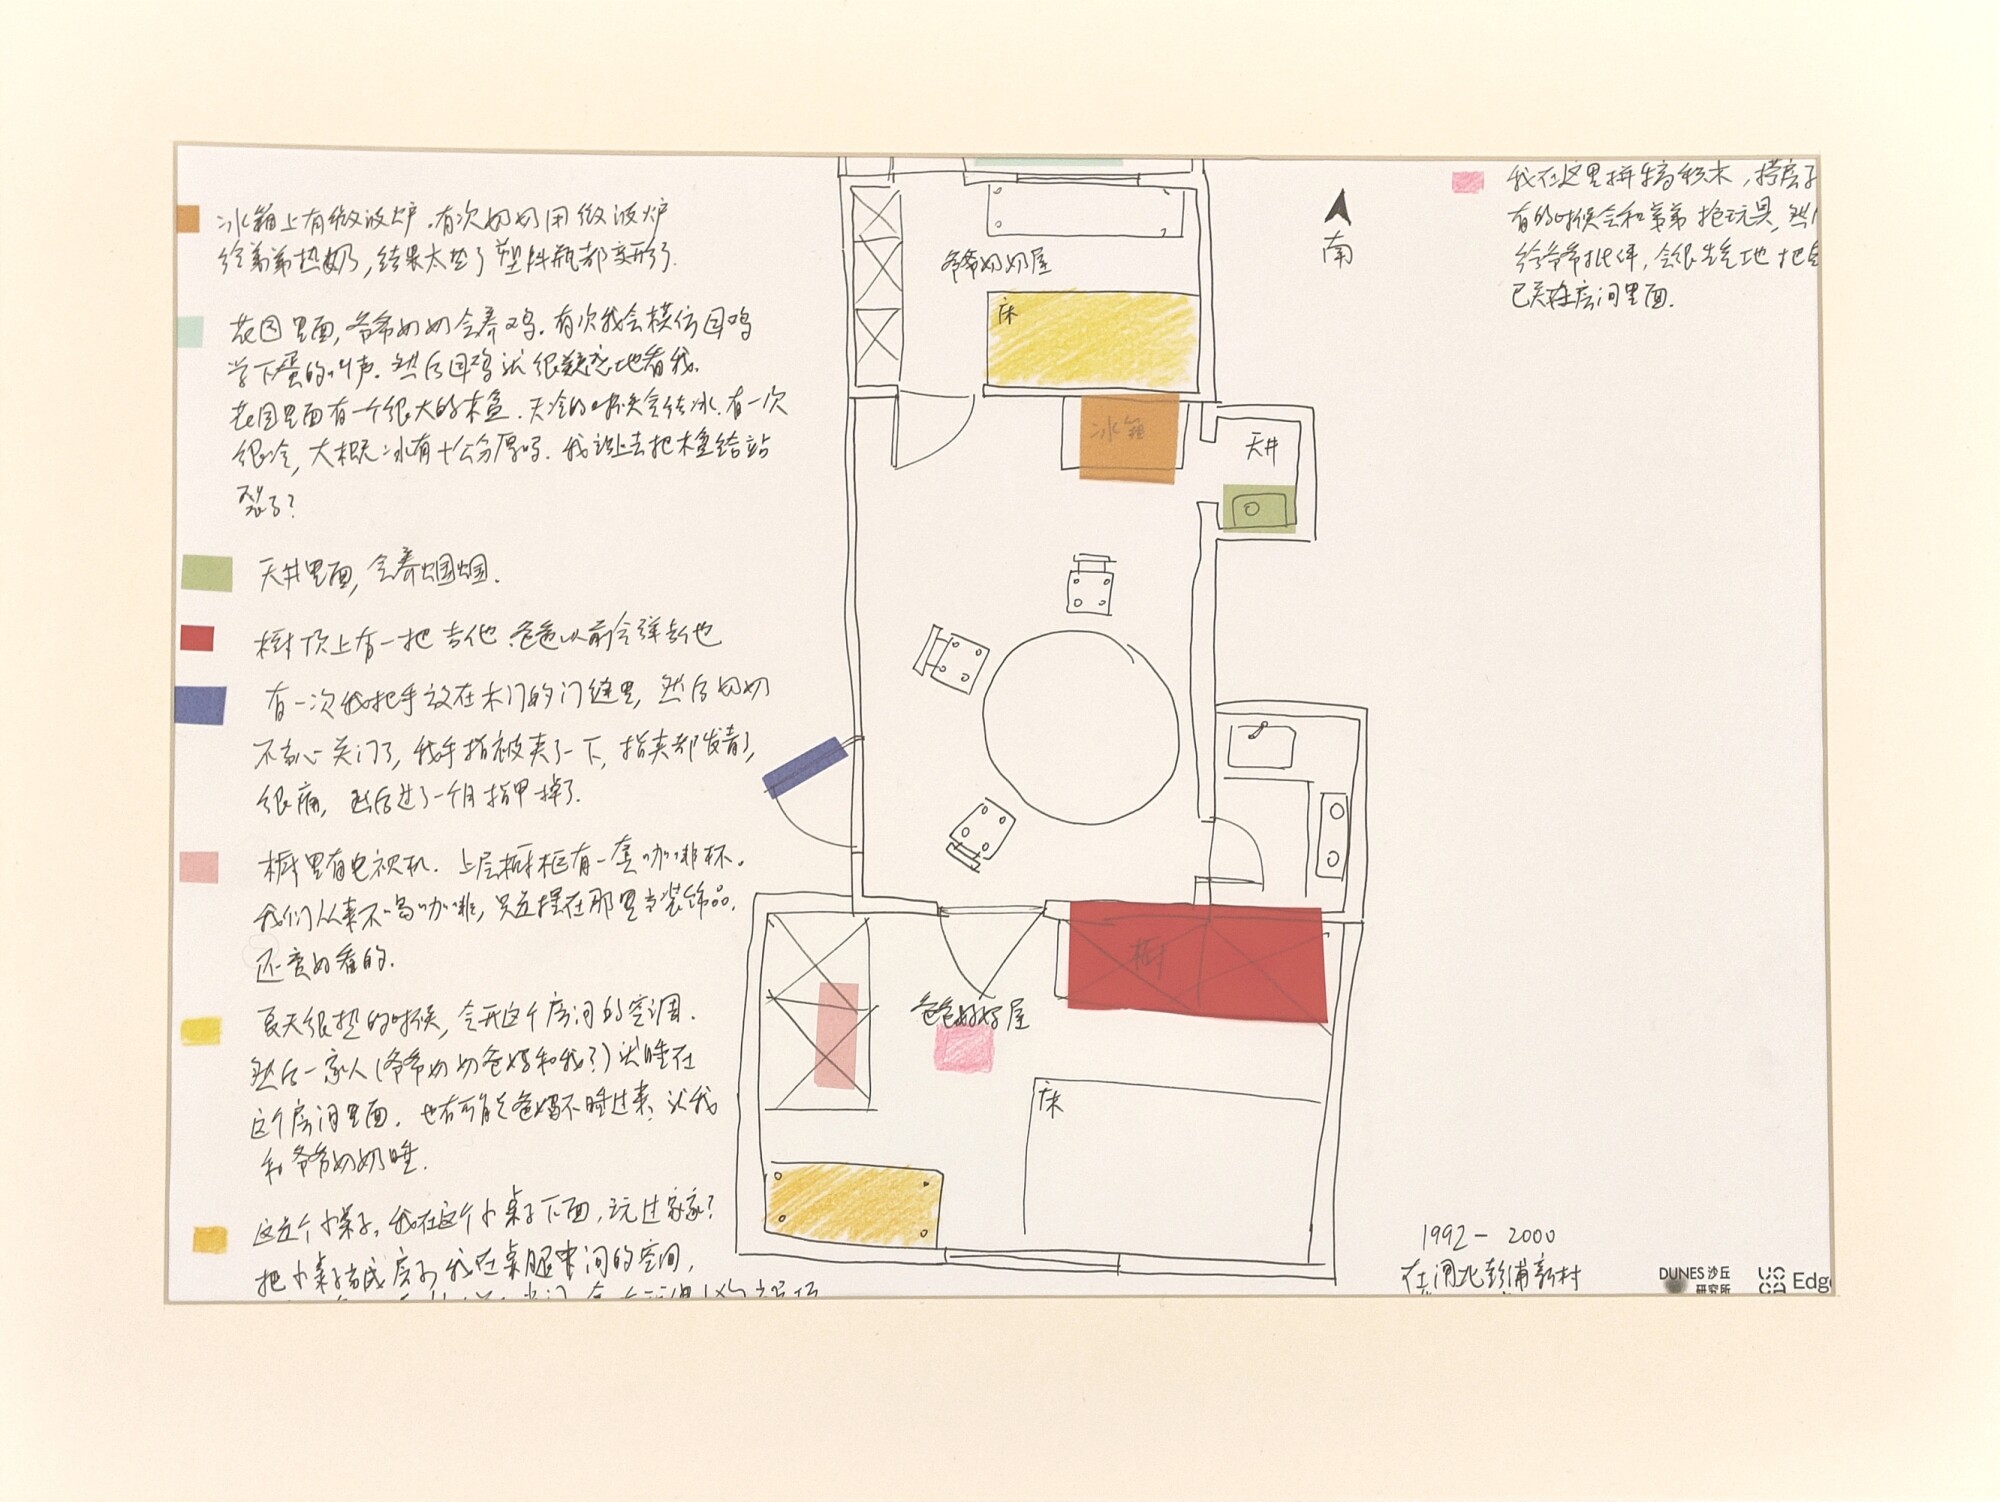 冰箱上有微波炉.有次奶奶用微波炉
给弟弟热奶,结果太烫了塑料瓶都变形了.
花园里面,爷爷奶奶会养鸡.有次我会模仿母鸡
学下蛋的叫声.然后母鸡就很疑惑地看我.
花园里面有一个很大的木盆.天冷的时候会结冰.有一次
很冷,大概冰有十公分厚吗.我跳上去把木盆给站
裂了?
天井里面,会养蝈蝈.
橱顶上有一把吉他.爸爸以前会弹吉他
有一次我把手放在木门的门缝里,然后奶奶
不当心关门了,我手指被夹了一下,指夹都发青了,
很痛,然后过了一个月指甲掉了.
橱里有电视机.上层橱柜有一套咖啡杯.
我们从来不喝咖啡,只是摆在那里当装饰品.
还蛮好看的.
夏天很热的时候,会开这个房间的空调.
然后一家人(爷爷奶奶爸妈和我?)就睡在
这个房间里面.也有可能是爸妈不睡过来,就我
和爷爷奶奶睡.
这是个小桌子,我在这个小桌子下面,玩过家家?
把小桌子当成房子,我在桌腿中间的空间,
爷爷奶奶屋
床
冰箱
天井
橱
爸爸妈妈屋
床
南
我在这里拼乐高积木,搭房子
有的时候会和弟弟抢玩具,然
给爷爷批评,会很生气地把自
己关在房间里面.
1992-2000
在闸北彭浦新村
DUNES沙丘
研究所
UCCA Edge